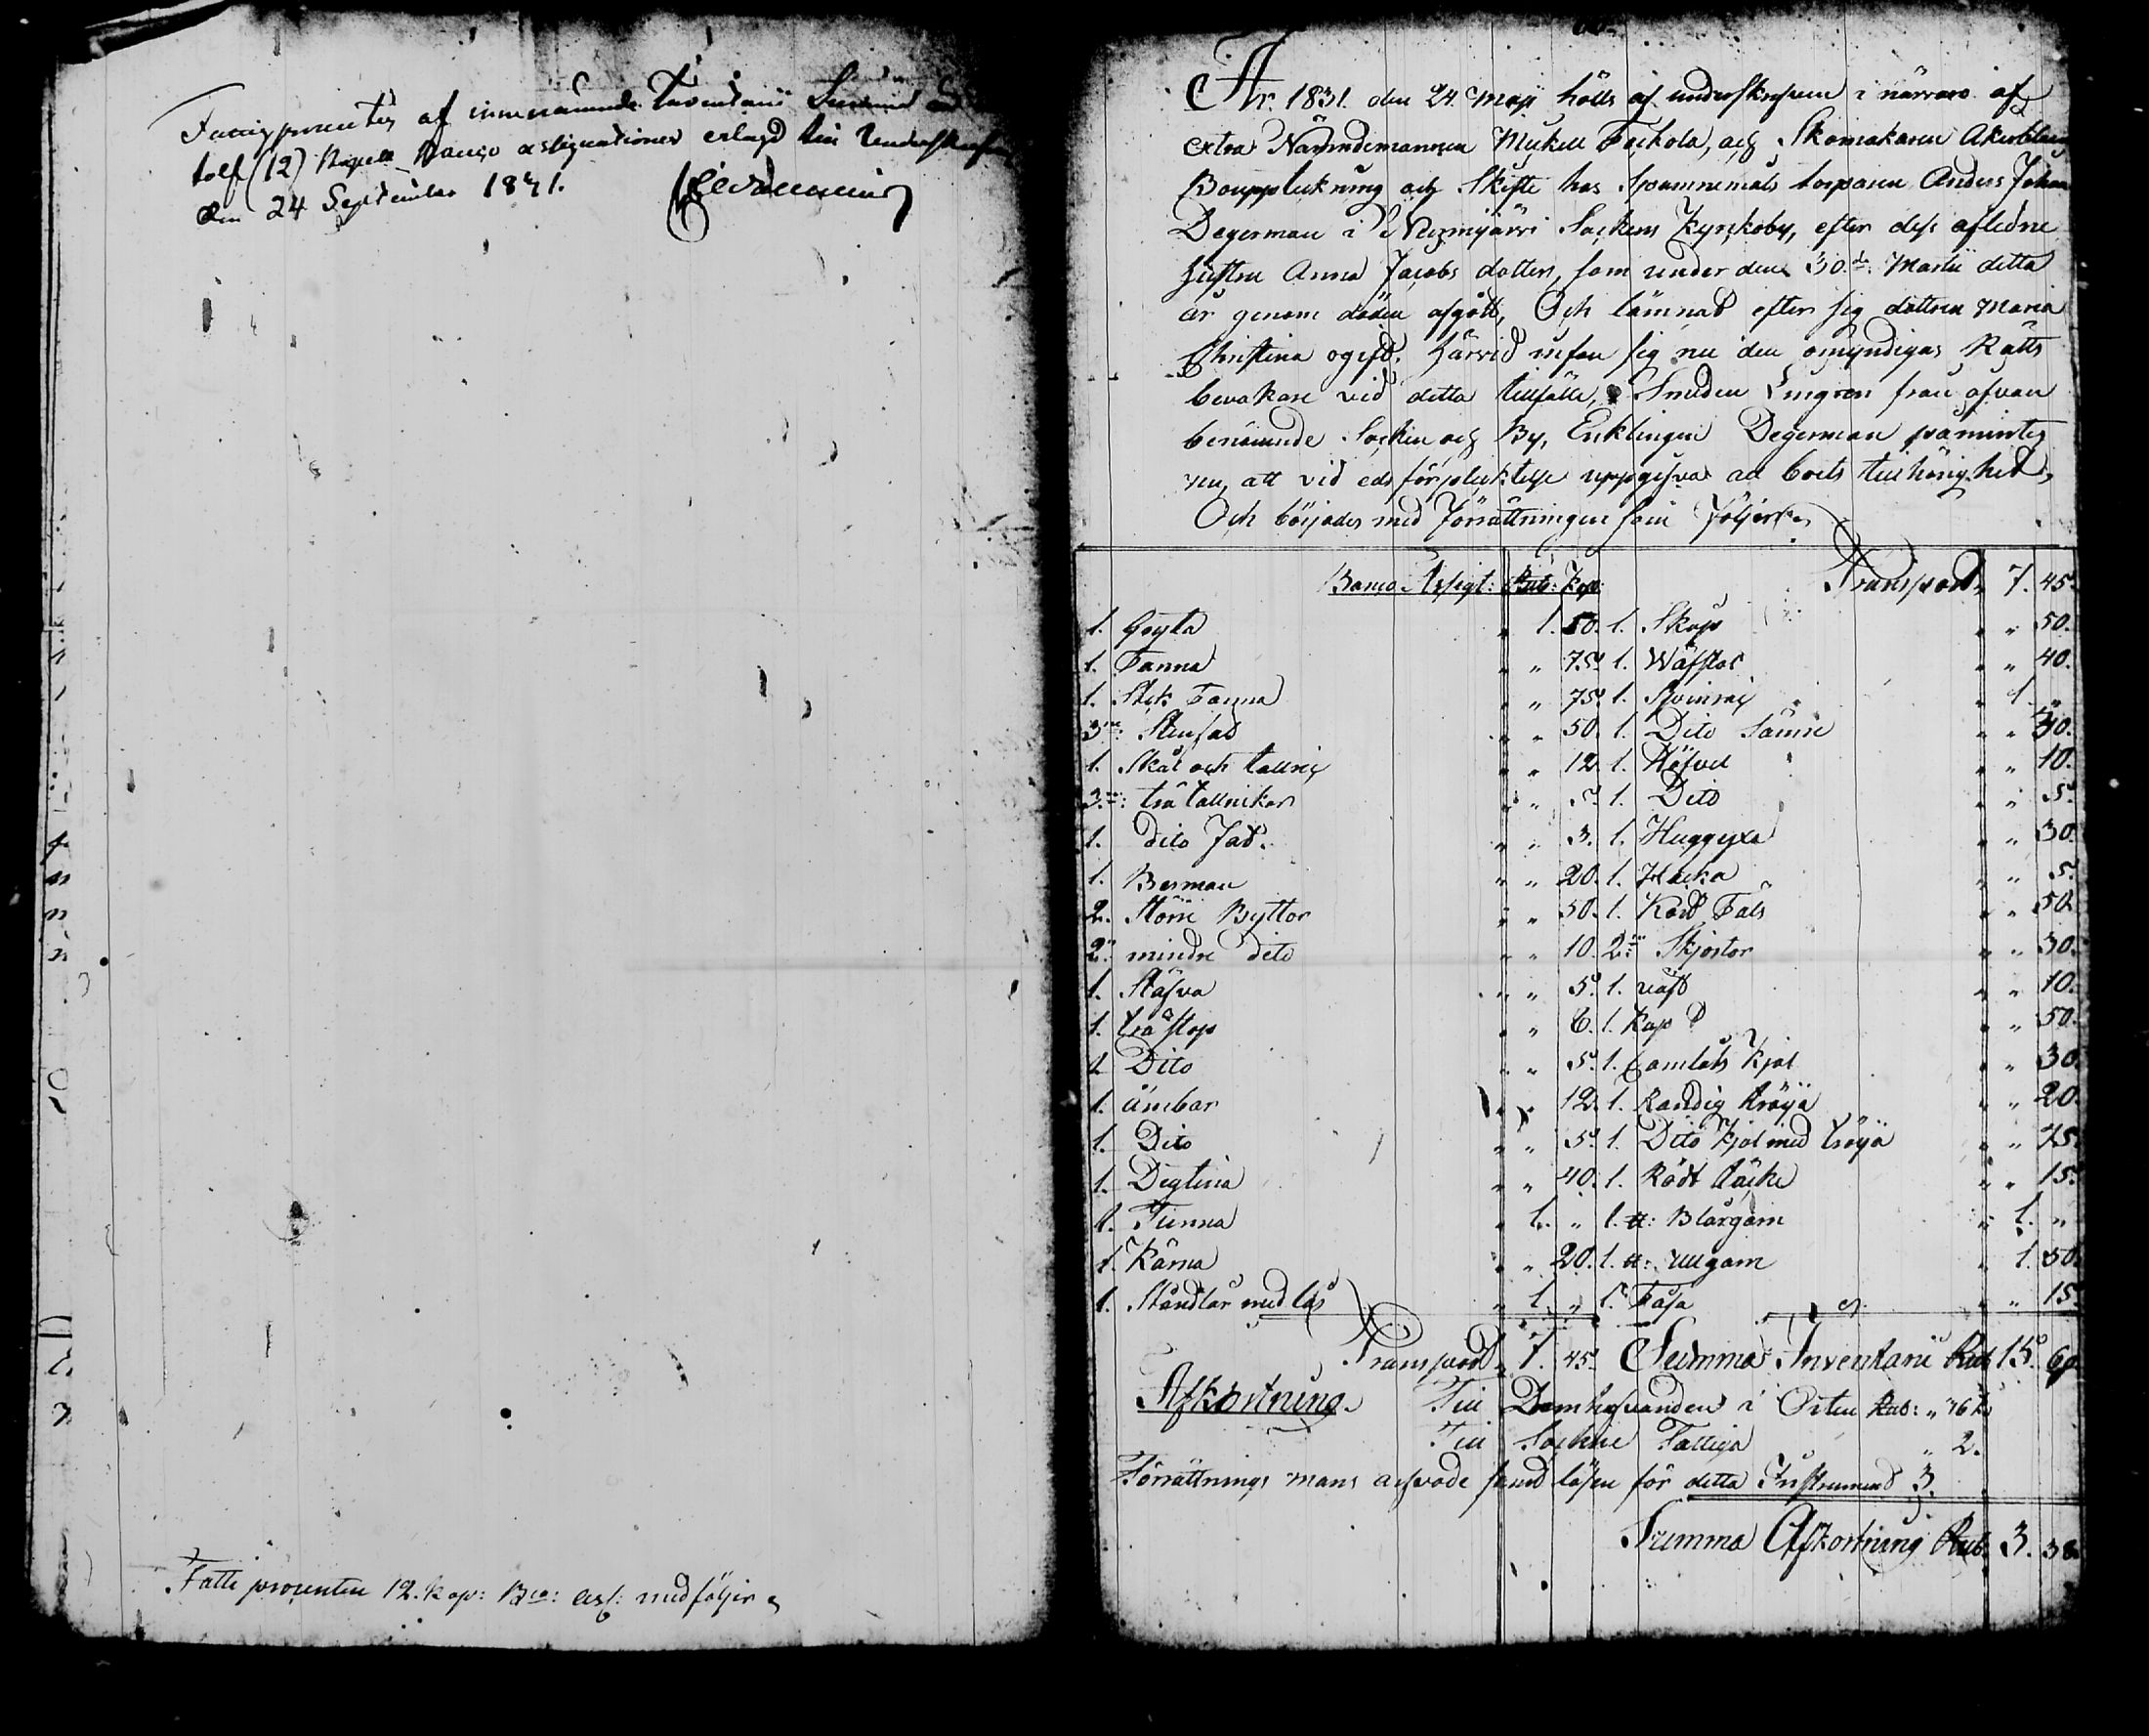 Fattigprocenten af innenämnde Inventarii Summa
tolf (12) Kopek Banco assignationer erlagd till Underskrifven
den 24 September 1831.
Fatti procenten 12. kop: Bco: ass: medföljer
År 1831. den 24 Maji hölls af underskrefven i närvaro af
extra Nämndemannen Mickel Tockola, och Skomakaren Åkerblom
Boupptekning och Skifte hos Spannemåls torparen Anders Johan
Degerman i Nurmijärvi Sockens Kyrckoby, efter dess afledne
hustru Anna Jacobs dotter, som under den 30de Martii detta
år genom döden afgått, Och lämnat efter sig dottren Maria
Christina ogift. härvid infan sig nu den omyndigas Rätts
bevakare vid detta tillfälle, Smeden Lingren från ofvan
benämnde Socken och By, Enklingen Degerman påmintes
nu, att vid eds förplicktelse uppgifva all boets tillhörighet,
Och börjades med förrättningen som följer
Banco Assigt: Rub: Kop:
1. Gryta " 1. 50.
1. Panna " " 75.
1. Stek Panna " " 75.
3ne: Stenfat " " 50.
1. Skål och tallrick " " 12.
3ne: trä tallrikar " " 5.
1. dito Fat. " " 3.
1. Besman " " 20.
2. Större Byttor " " 50.
2. mindre dito " " 10.
1. Stäfva " " 5.
1. trä stop " " 6.
1 Dito " " 5.
1. ämbar " " 12.
1. Dito " " 5.
1. Degtina " " 40.
1. Tunna " 1. "
1. Kärna " " 20.
1. Ståndlår med lås " 1. "
Transport " 7. 45.
Transport 7. 45.
1. Skåp " " 50.
1. Wäfstol " " 40.
1. Spinråck " 1. "
1. Dito Sämre " " 30.
1. Höfvel " " 10.
1. Dito " " 5.
1. Huggyxa " " 30.
1. Hacka " " 5.
1. Kård Päls " " 50.
2ne Skjortor " " 30.
1. väst " " 10.
1. Kapt " " 50.
1. Camlots Kjol " " 30.
1. Randig tröya " " 20.
1. Dito Kjol med tröya " " 75.
1. Rödt täcke " " 15.
1. ℔: Blårgarn " 1. "
1. ℔: ullgarn " 1. 50.
1. Påsa " " 15.
Summa Inventarii Rub 15. 60.
Afkortning. Till Domhafvanden i Orten Rub: " 36 k
Till Sockne Fattiga " 2.
Förrättnings mans arfvode samt lösen för detta Instrument 3.
Summa Afkortning Rub 3. 38.